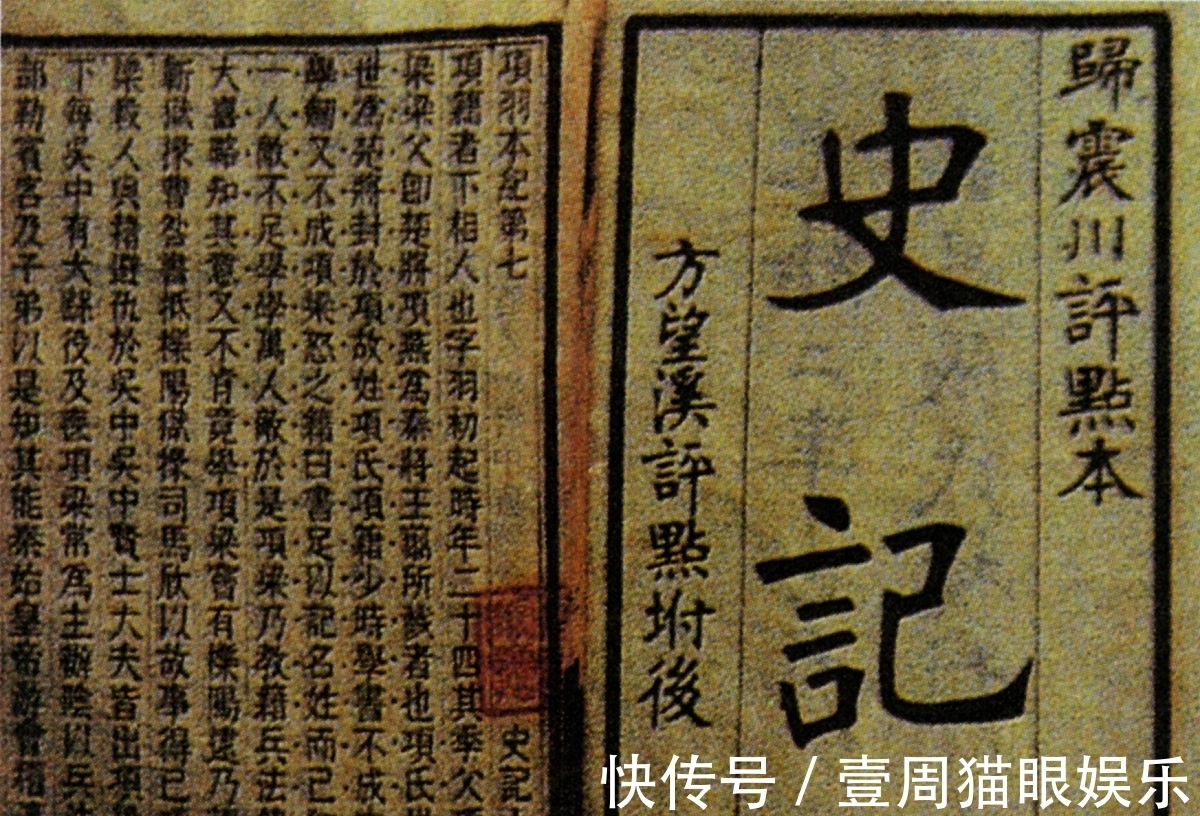 歸震川評點本
史記
方望溪評點坿後
項羽本紀第七
史記
項籍者下相人也字羽初起時年二十四其季父
梁梁父卽楚將項燕爲秦將王翦所戮者也項氏
世爲楚將封於項故姓項氏項籍少時學書不成
學劒又不成項梁怒之籍曰書足以記名姓而已
一人敵不足學學萬人敵於是項梁乃教籍兵法
大喜略知其意又不肯竟學項梁嘗有櫟陽逮乃
蘄獄掾曹咎書抵櫟陽獄掾司馬欣以故事得已
梁殺人與籍避仇於吳中吳中賢士大夫皆出項
下每吳中有大繇役及喪項梁常爲主辦陰以兵
部勒賓客及子弟以是知其能秦始皇帝游會稽
快传号 / 壹周猫眼娱乐